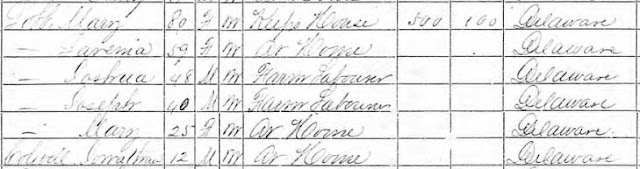 Mary 80 F M Keeps House 500 100 Delaware
— 59 F M At Home Delaware
— Joshua 48 M M Farm Labourer Delaware
— Joseph 40 M M Farm Labourer Delaware
— Mary 25 F M At Home Delaware
12 M M At Home Delaware